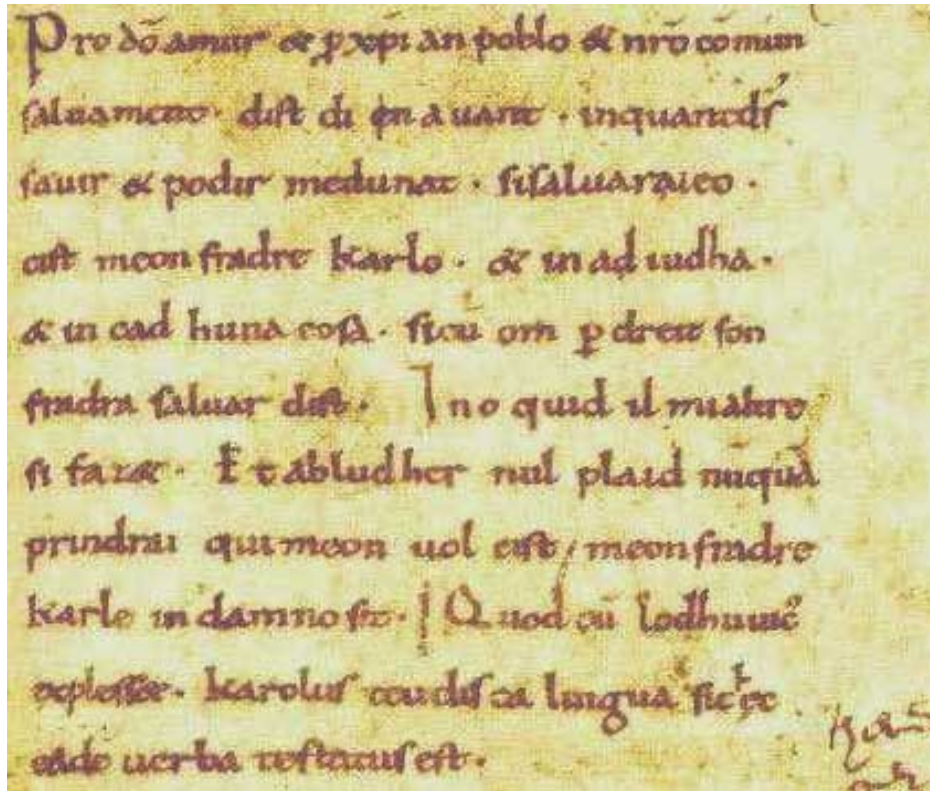 Pro dō amur & ꝑ xp̄i an poblo & nr̄o cōmun
saluament. dist di en auant. inquantds̄
sauir & podir medunat. sisaluaraieo.
cist meon fradre karlo. & in ad iudha.
& in cad huna cosa. sicū om ꝑ dreit son
fradra saluar dist. Ino quid il mialtre
si fazet. Et abludher nul plaid nūquā
prindrai qui meon uol cist meon fradre
karle in damno sit. Quod cū lodhuuic
explesset. karolus teudis ca lingua sic &
eadē uerba testatus est.